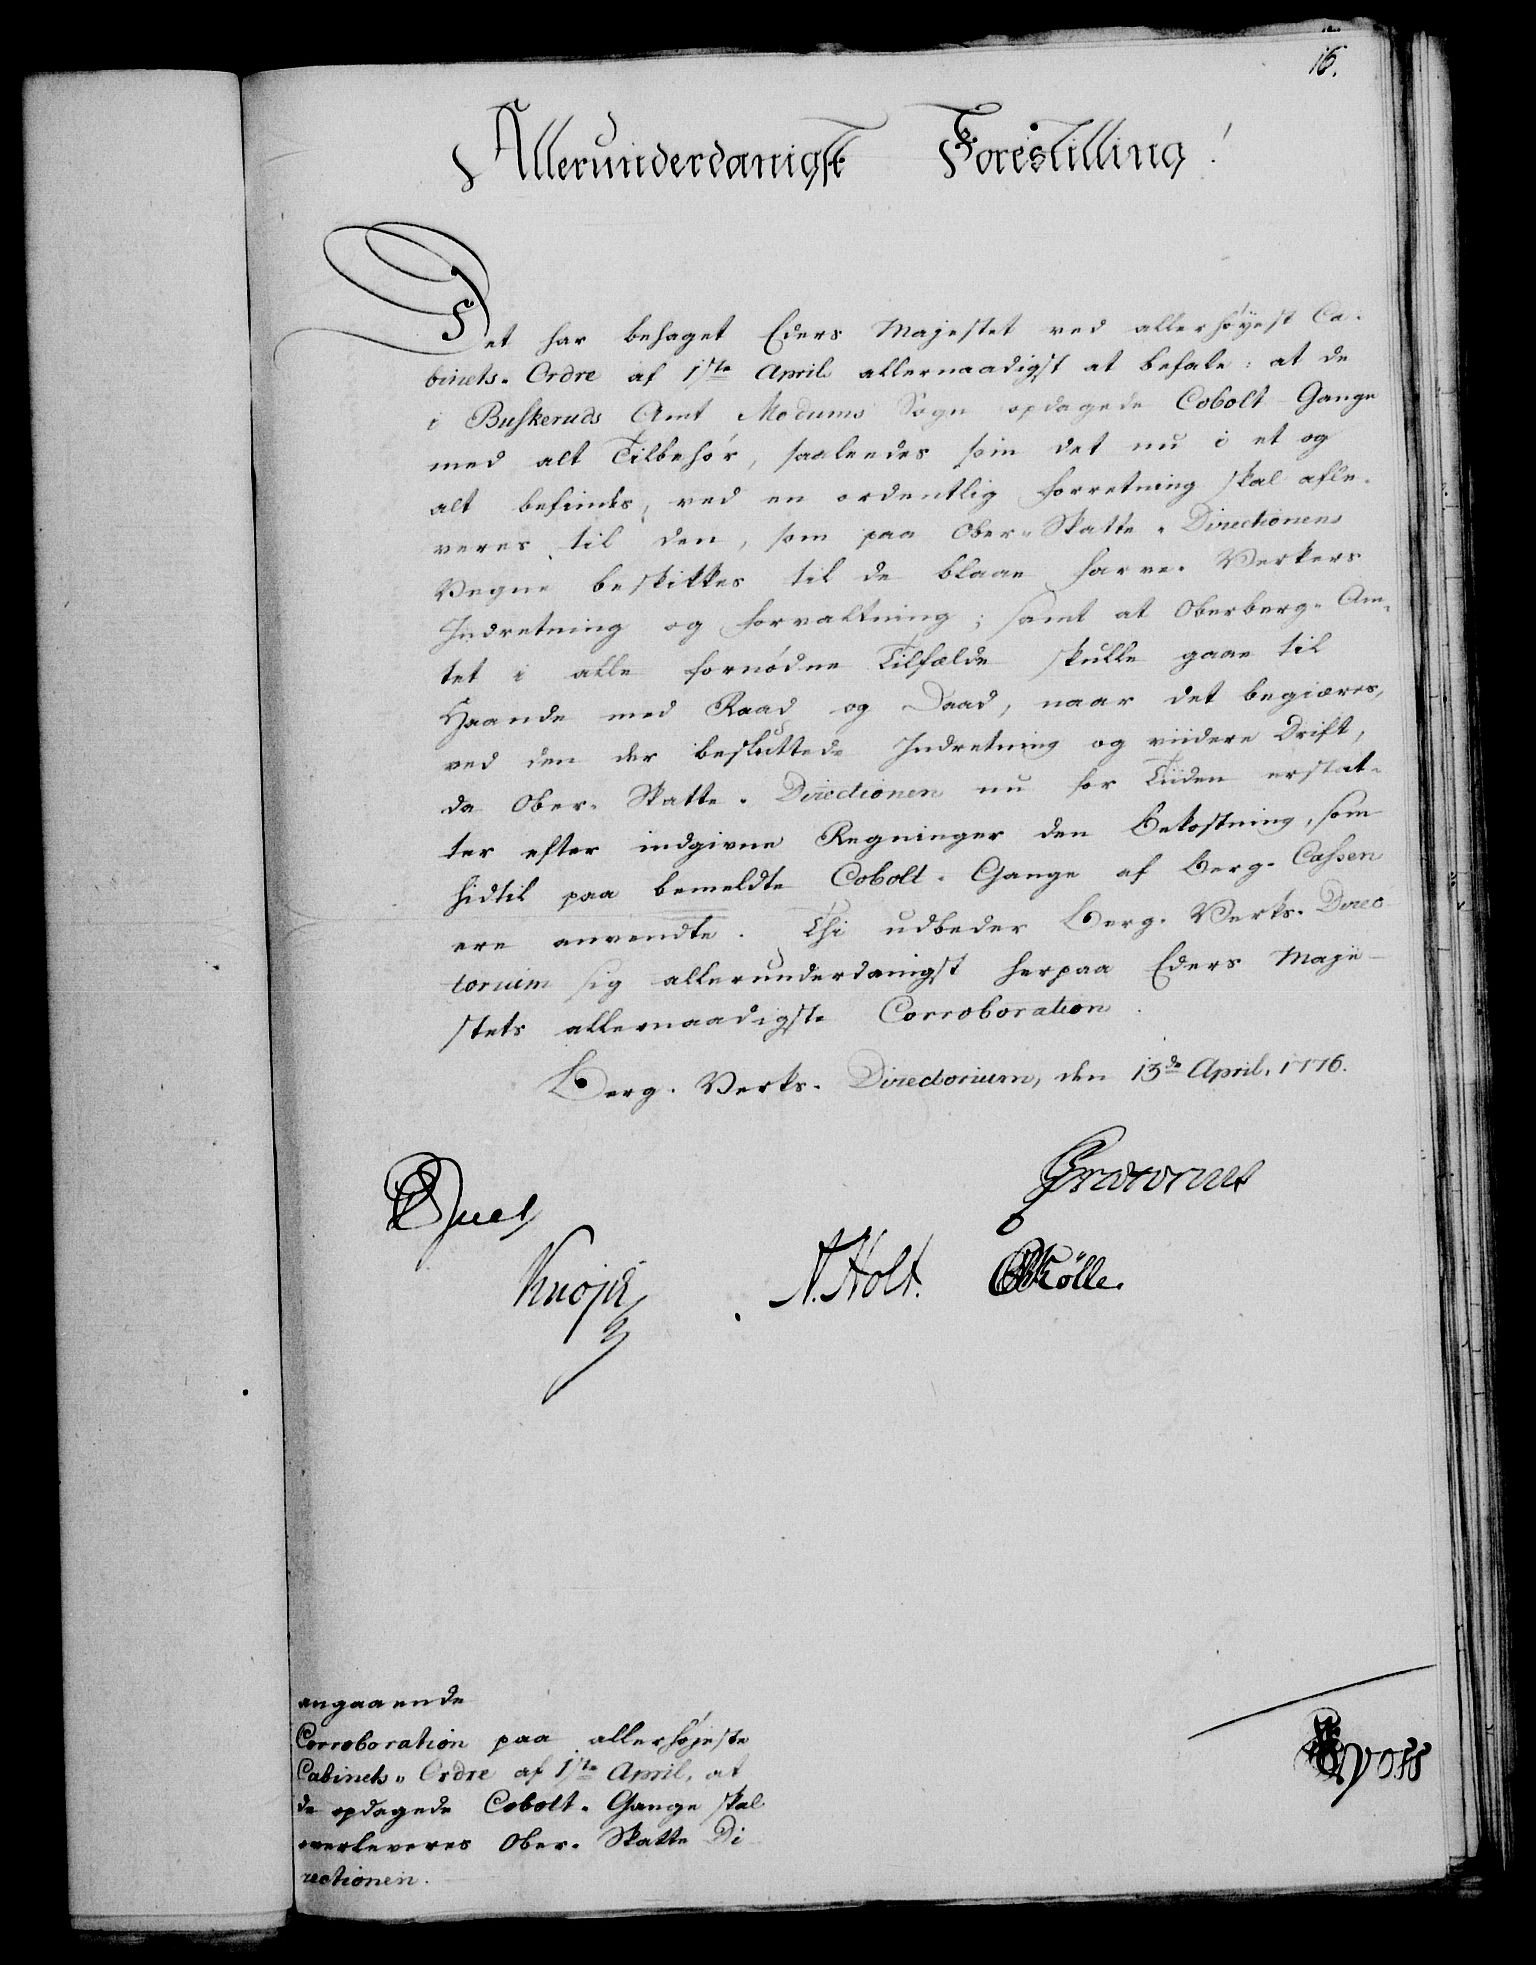 16.
Allerunderdanigst Forestilling!
Det har behaget Eders Majestet ved allerhøyest Ca-
binets-Ordre af 1ste April allernaadigst at befale: at de
i Buskeruds Amt Modums Sogn opdagede Cobolt Gange
med alt Tilbehør, saaledes som det nu i et og
alt befindes, ved en ordentlig Forretning skal afle-
veres til den, som paa Ober-Skatte-Directionens
Vegne beskikkes til de blaae Farve-Verkers
Indretning og Forvaltning; samt at Oberberg-Am-
tet i alle fornødne Tilfælde skulle gaae til
Haande med Raad og Daad, naar det begiæres,
ved den der besluttede Indretning og viidere Drift,
da Ober-Skatte-Directionen nu for Tiiden erstat-
ter efter indgivne Regninger den Bekostning, som
hidtil paa bemeldte Cobolt-Gange af Berg-Cassen
ere anvendte. Thi udbeder Berg-Verks-Direc-
torium sig allerunderdanigst herpaa Eders Maje-
stets allernaadigste Corroboration.
Berg-Verks-Directorium, den 13de April, 1776.
Juel
Knoph
N. Holt.
Kölle.
angaaende
Corroboration paa allerhøjeste
Cabinets-Ordre af 1ste April, at
de opdagede Cobolt-Gange skal
overleveres Ober-Skatte Di-
rectionen.